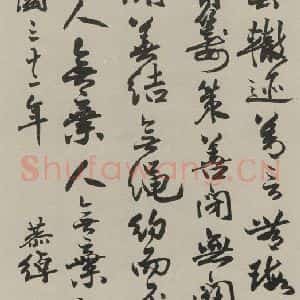 轍迹善言無瑕
籌策善閉無關
開善結無繩約而不
人無棄人無棄
國三十一年 恭綽
Shufawang.CN